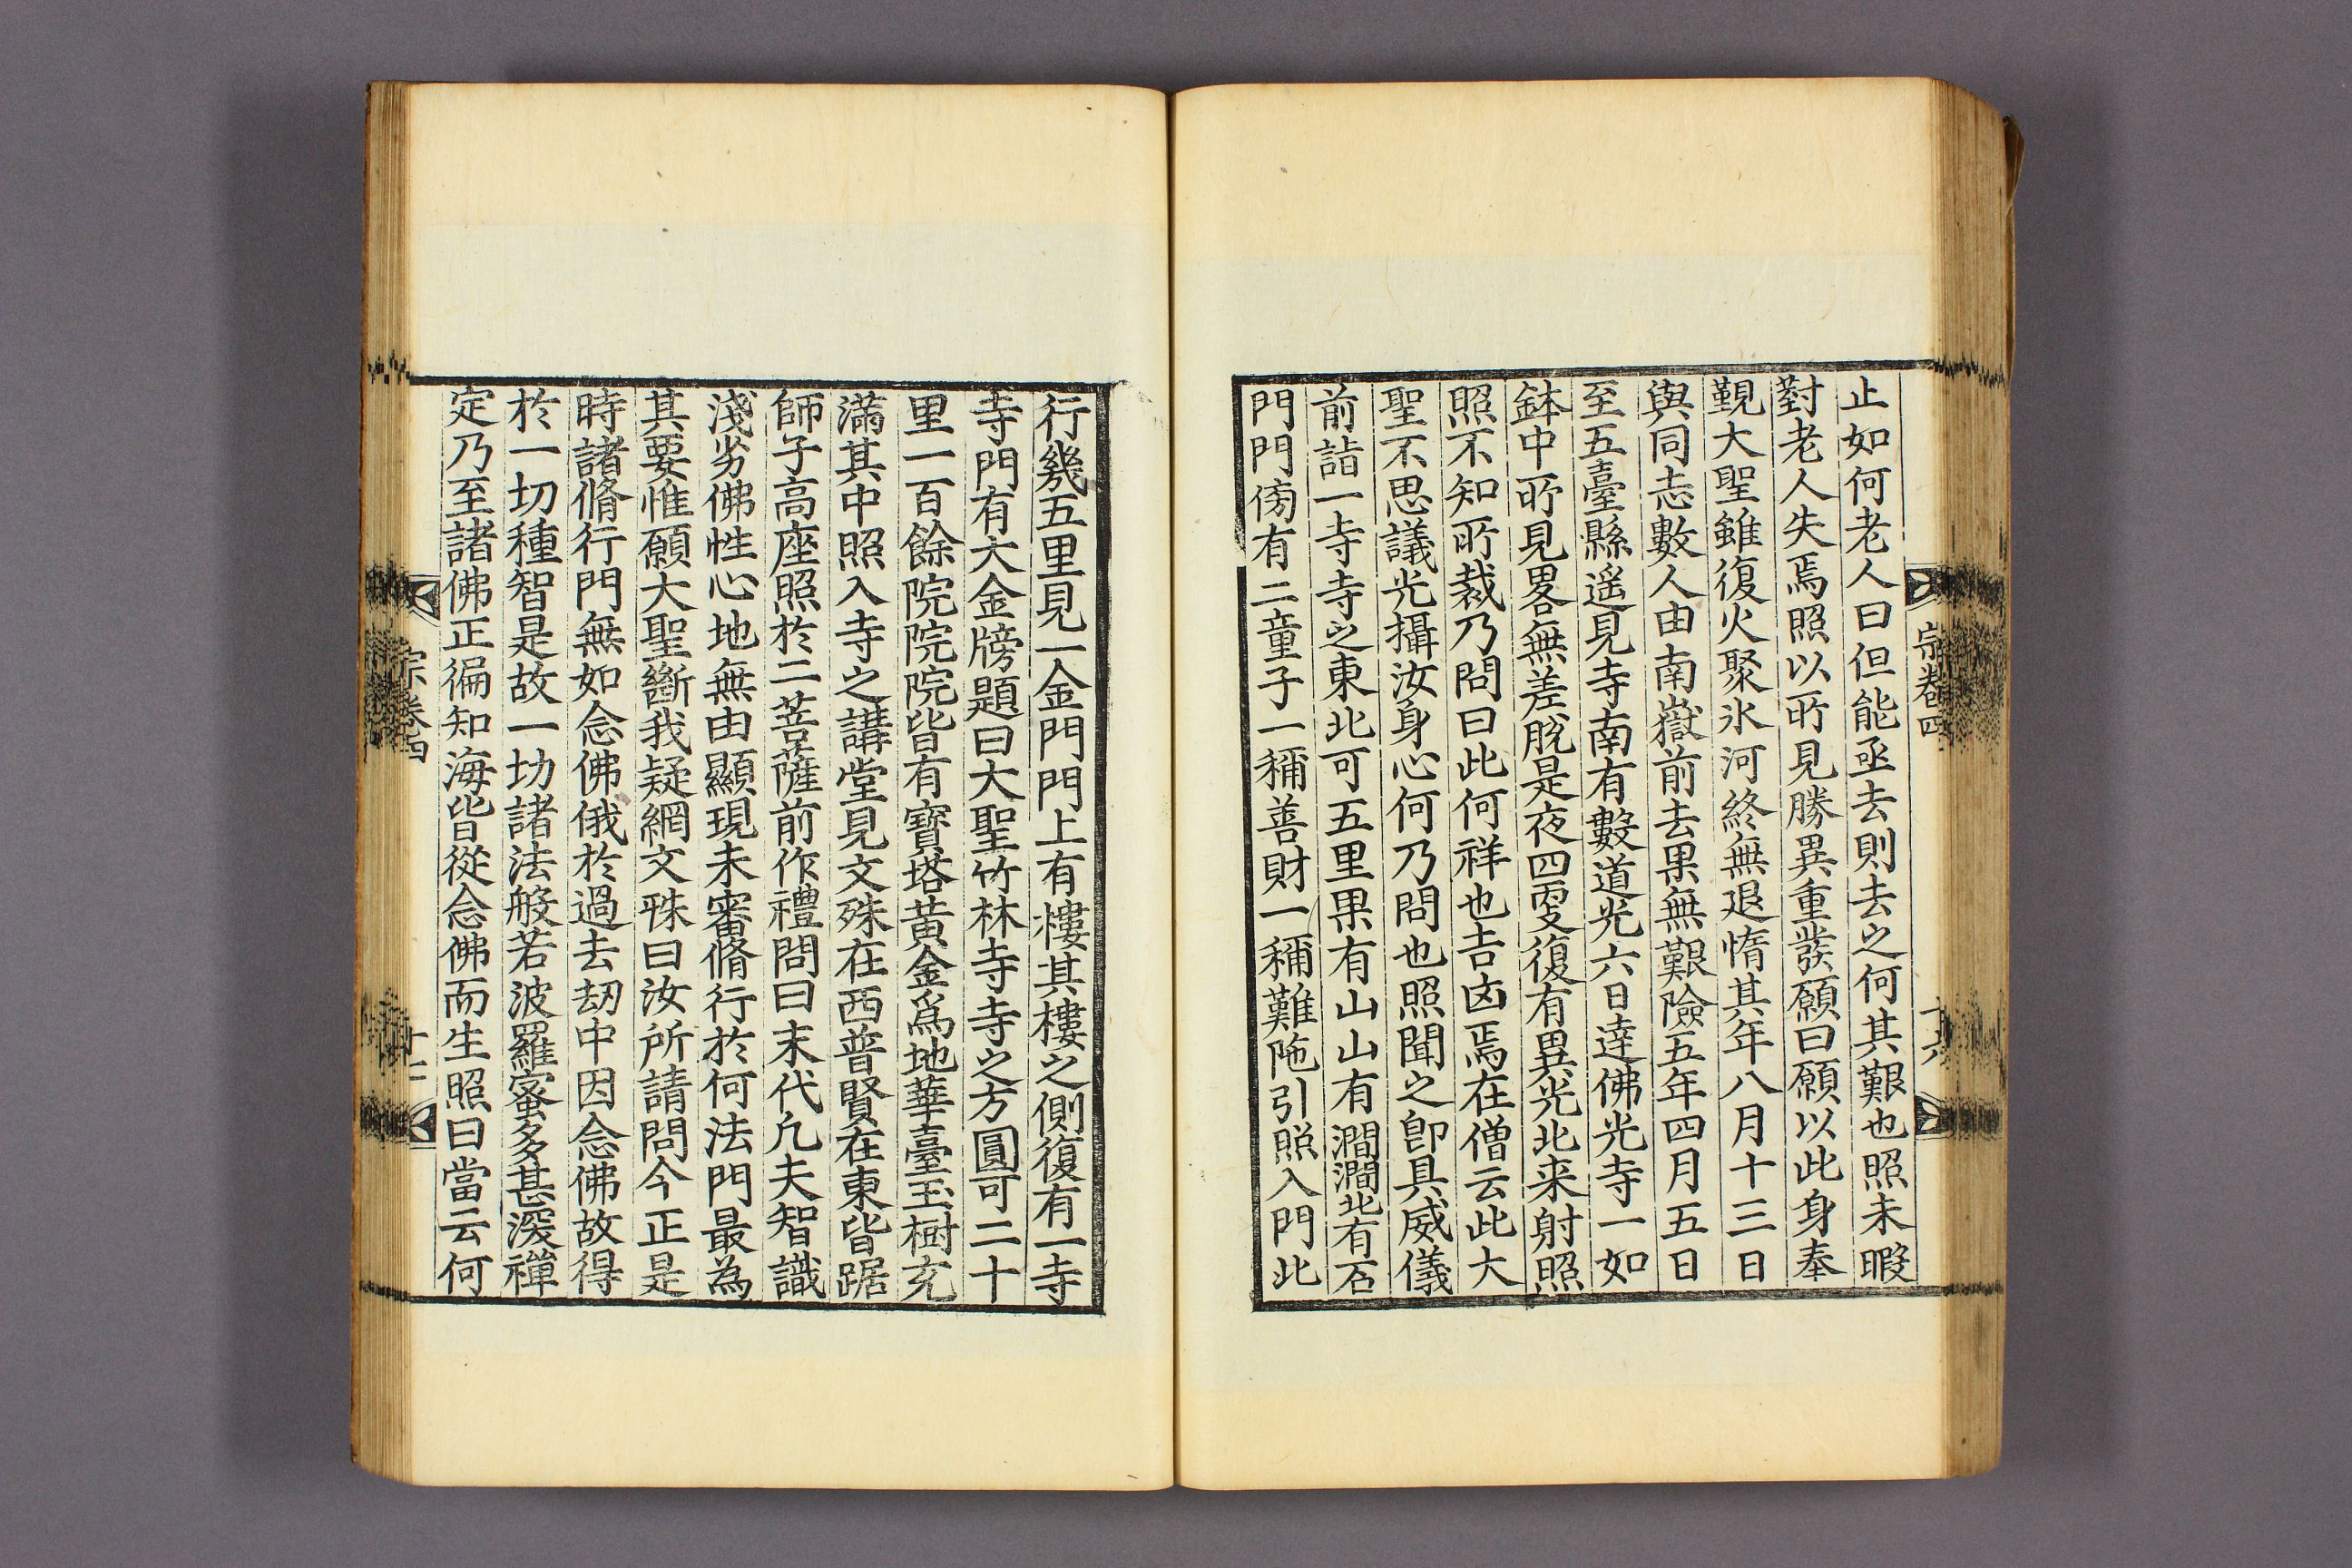 宗卷四
十六
止如何老人曰但能亟去則去之何其艱也照未暇
對老人失焉照以所見勝異重發願曰願以此身奉
覲大聖雖復火聚氷河終無退惰其年八月十三日
與同志數人由南嶽前去果無艱險五年四月五日
至五臺縣遥見寺南有數道光六日逹佛光寺一如
鉢中所見畧無差脫是夜四更復有異光北来射照
照不知所裁乃問曰此何祥也吉凶焉在僧云此大
聖不思議光攝汝身心何乃問也照聞之卽具威儀
前詣一寺寺之東北可五里果有山山有澗澗北有石
門門傍有二童子一稱善財一稱難陁引照入門此
行幾五里見一金門門上有樓其樓之側復有一寺
寺門有大金牓題曰大聖竹林寺寺之方圓可二十
里一百餘院院院皆有寶塔黃金爲地華臺玉樹充
滿其中照入寺之講堂見文殊在西普賢在東皆踞
師子高座照於二菩薩前作禮問曰末代凢夫智識
淺劣佛性心地無由顯現未審脩行於何法門最為
其要惟願大聖斷我疑網文殊曰汝所請問今正是
時諸脩行門無如念佛俄於過去劫中因念佛故得
於一切種智是故一切諸法般若波羅蜜多甚深禪
定乃至諸佛正徧知海皆從念佛而生照曰當云何
宗卷四